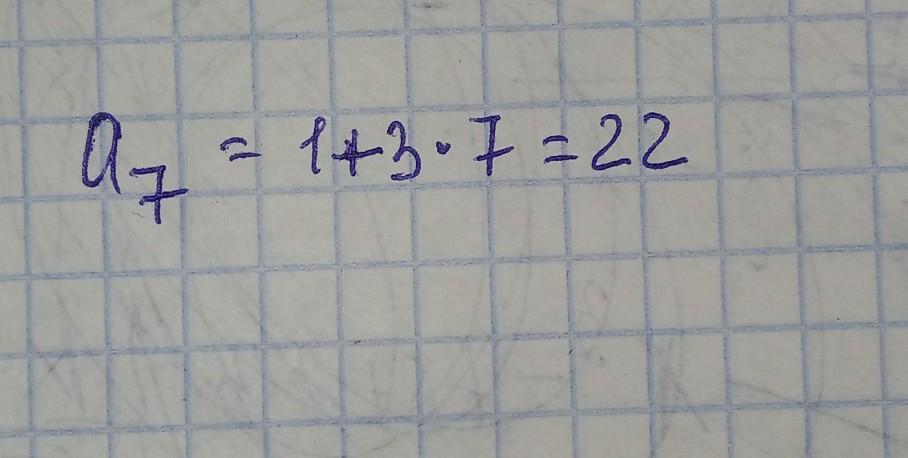 a₇ = 1+3·7=22